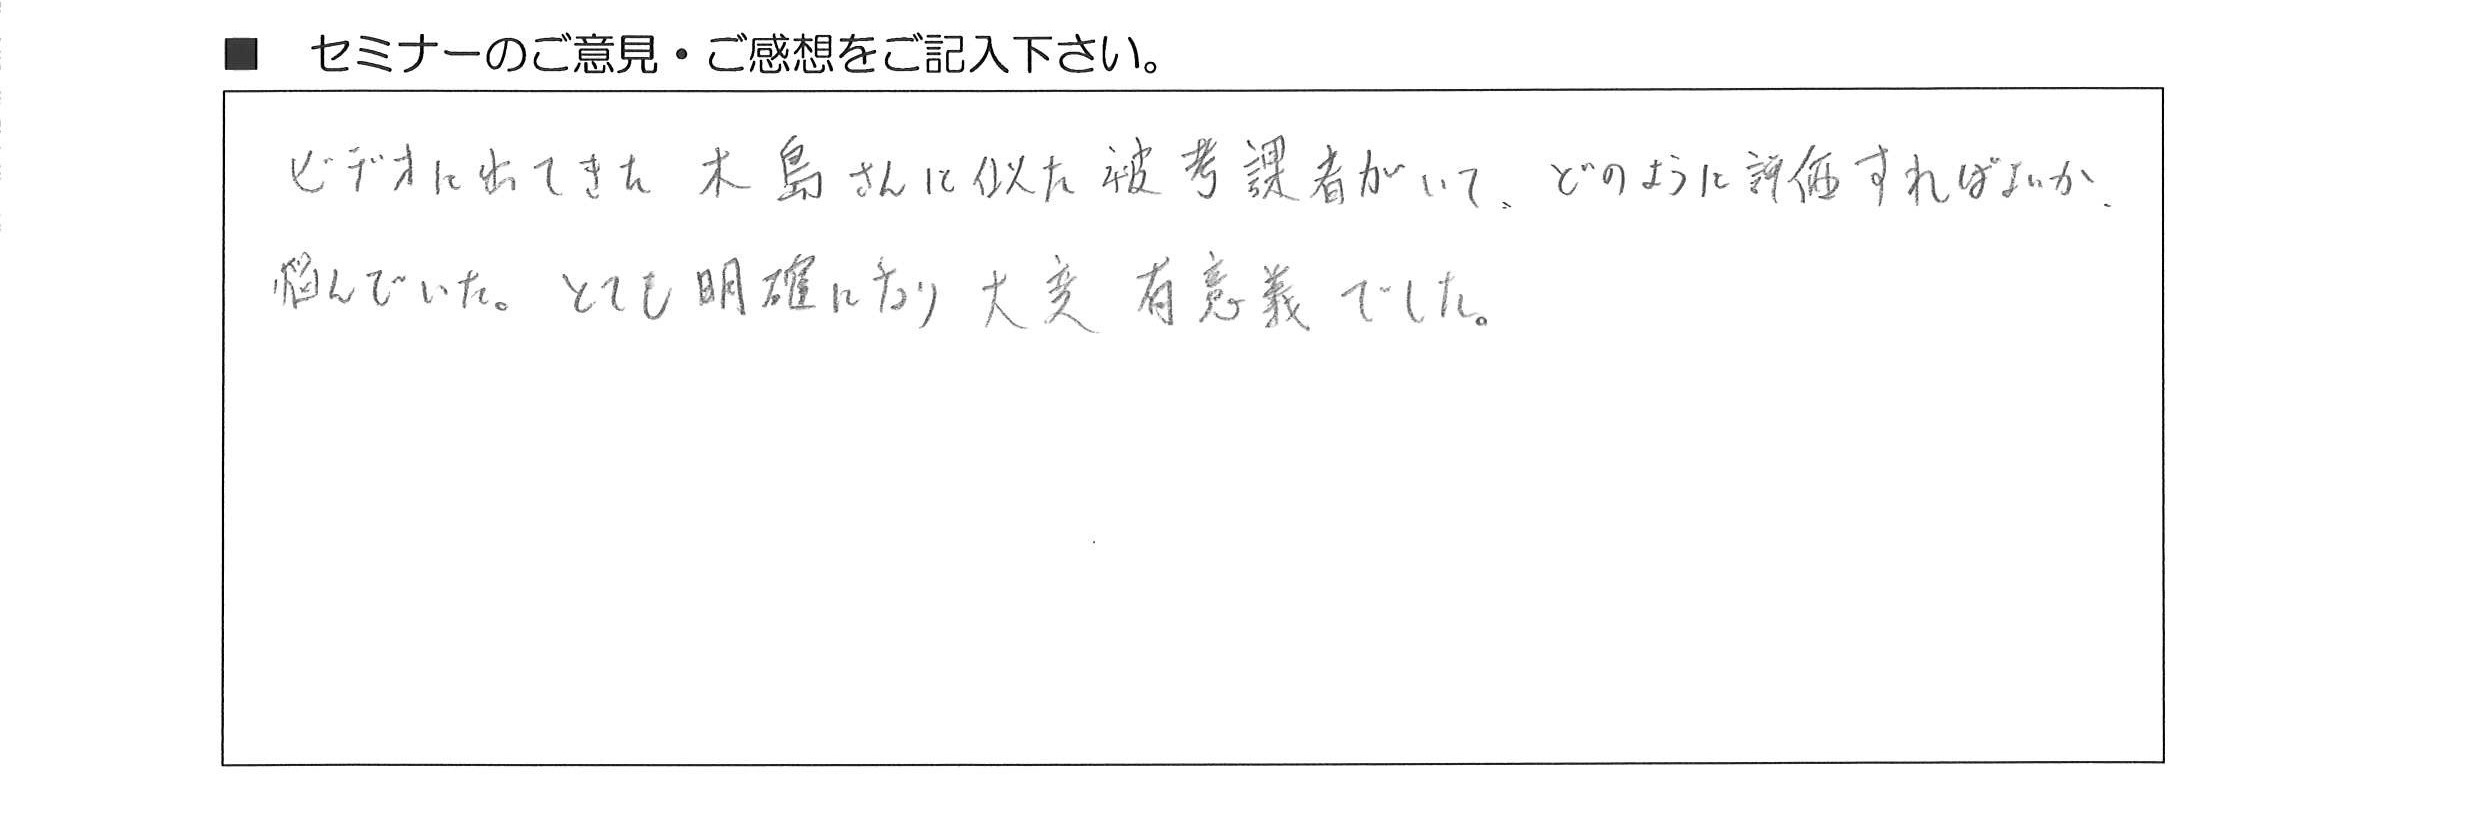 ■ セミナーのご意見・ご感想をご記入下さい。
ビデオに出てきた木島さんに似た被考課者がいて、どのように評価すればよいか、
悩んでいた。とても明確になり大変有意義でした。